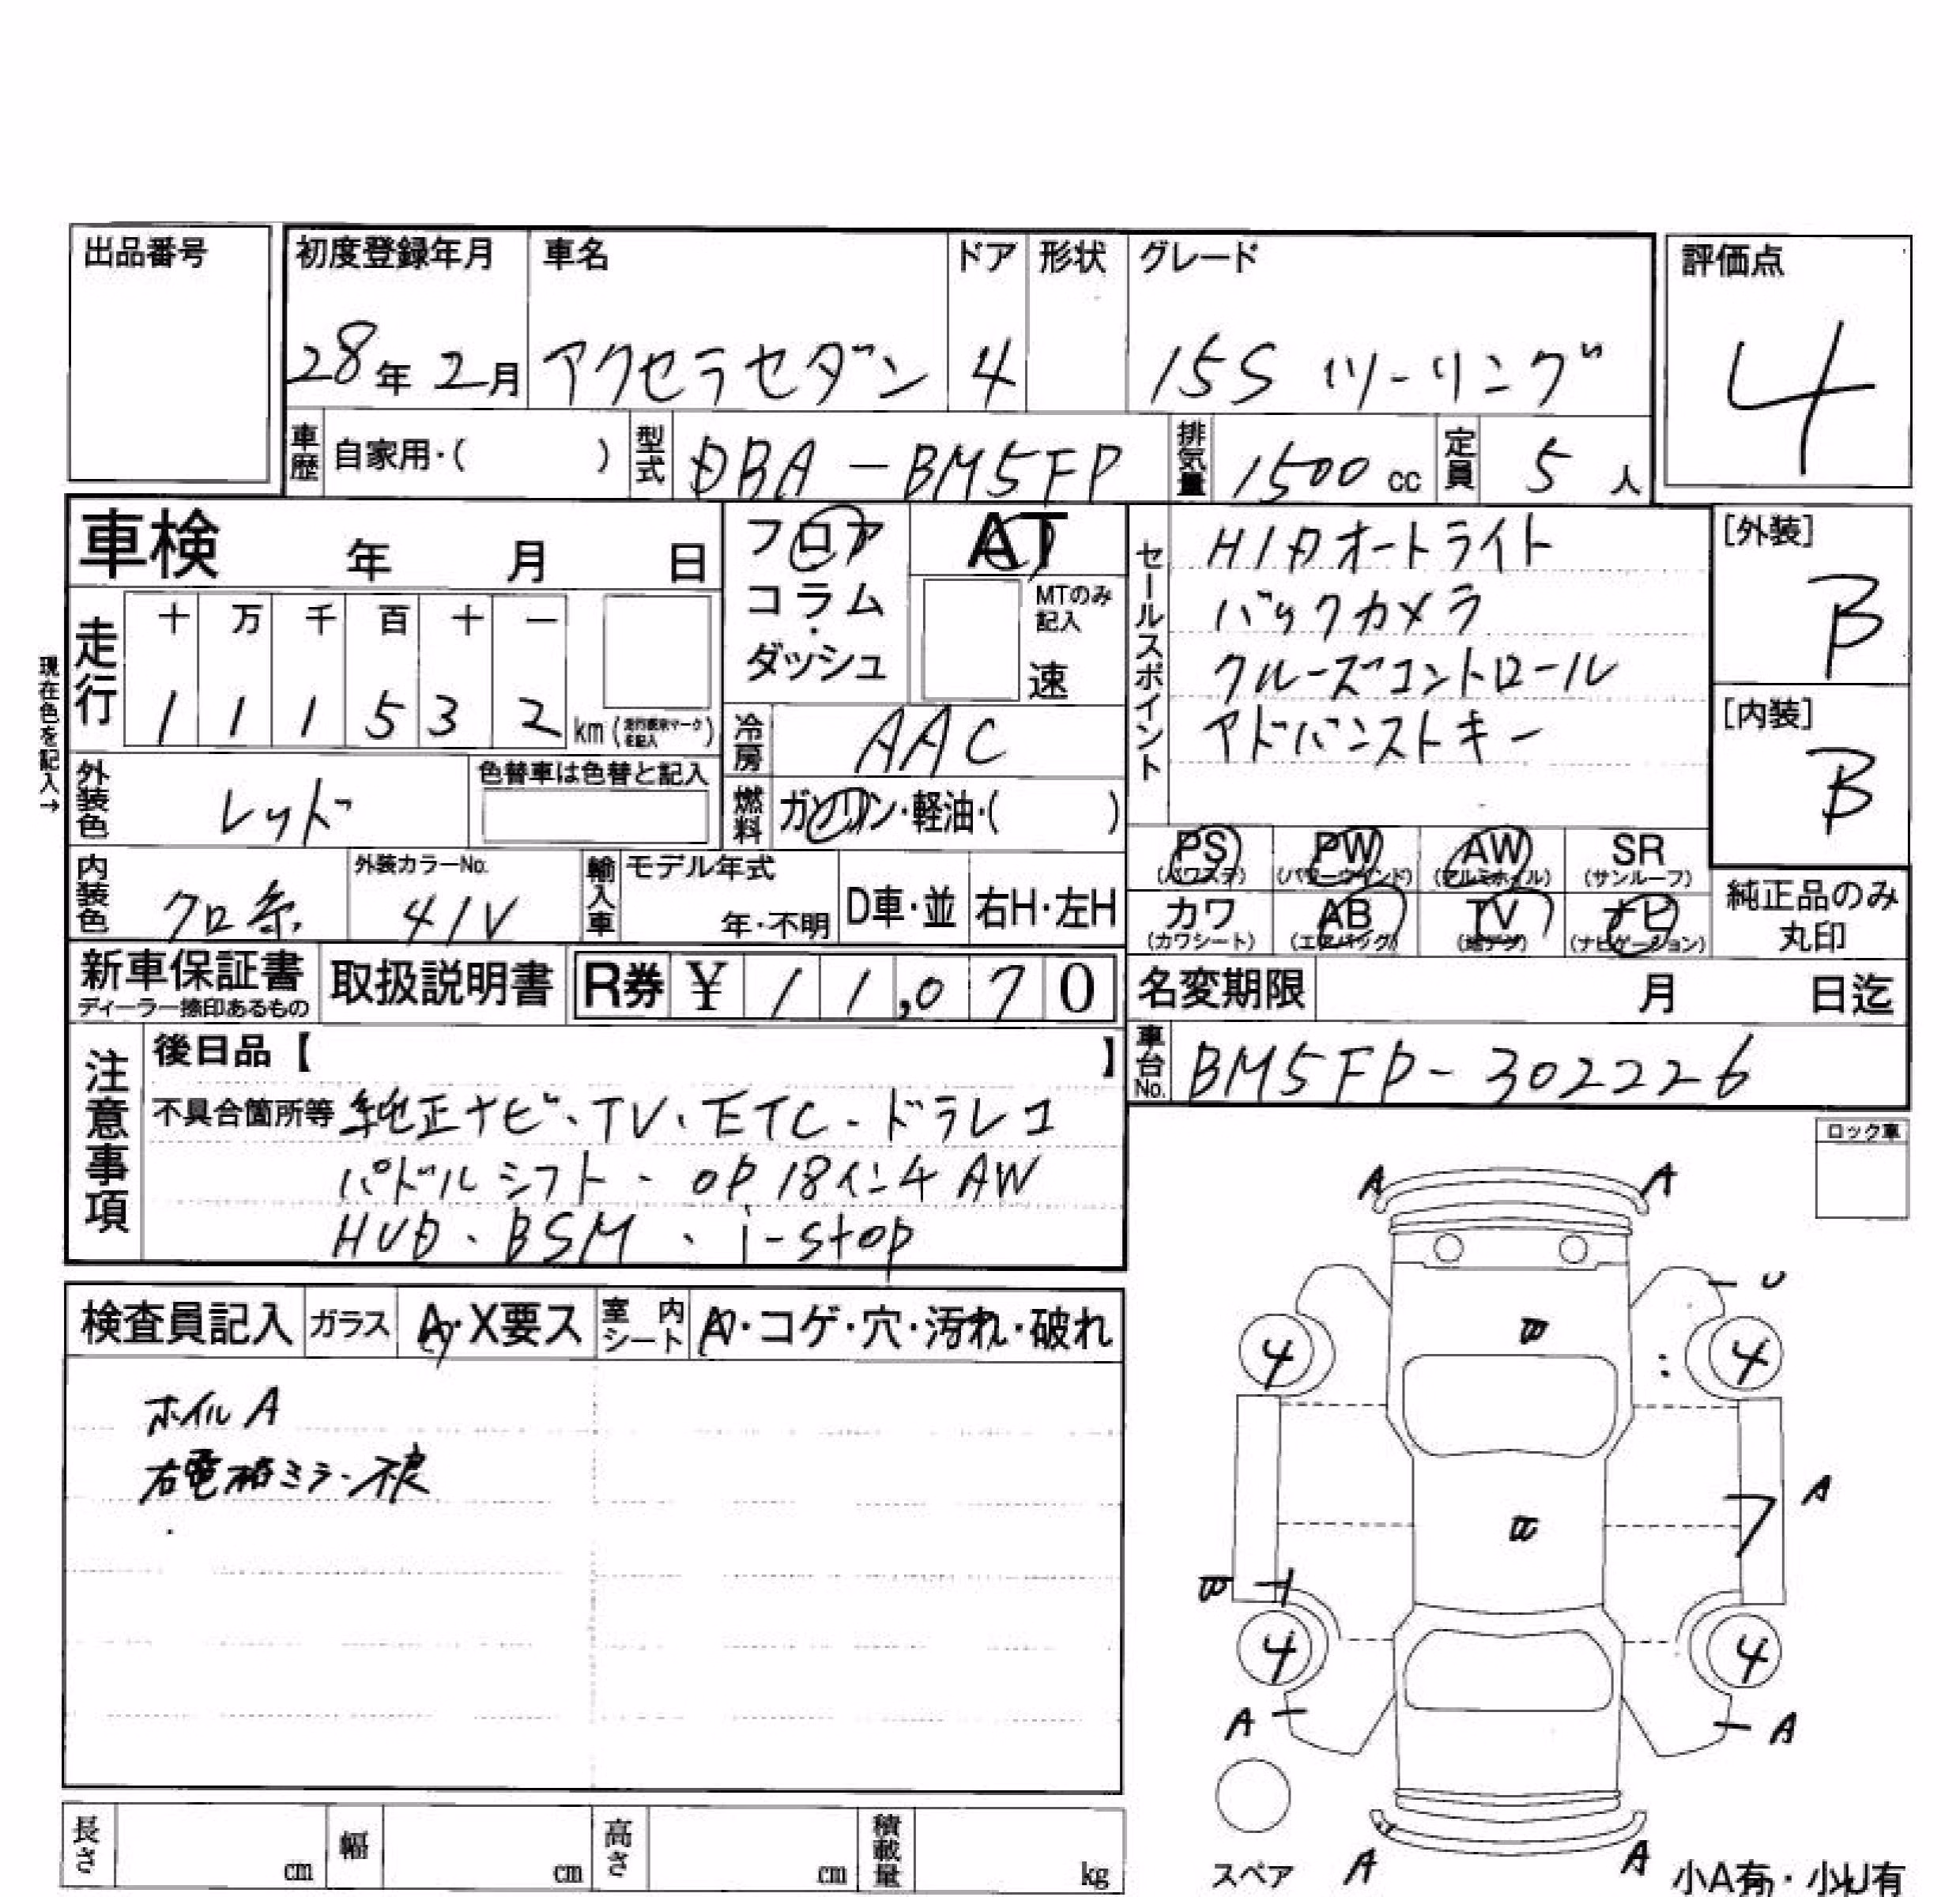 出品番号
初度登録年月 車名 ドア 形状 グレード 評価点
28年 2月 アクセラセダン 4 15S ツーリング 4
車歴 自家用・( ) 型式 DBA-BM5FP 排気量 1500 cc 定員 5 人
車検 年 月 日
フロア コラム・ダッシュ
AT
MTのみ記入 速
走行 十 万 千 百 十 一
1 1 1 5 3 2 km
現在色を記入→
冷房 AAC
燃料 ガソリン・軽油・( )
外装色 レッド 色替車は色替と記入
内装色 クロ系 外装カラーNo. 41V
輸入車 モデル年式 年・不明 D車・並 右H・左H
セールスポイント
HIDオートライト
バックカメラ
クルーズコントロール
アドバンストキー
[外装] B
[内装] B
PS (パワステ) PW (パワーウインド) AW (アルミホイル) SR (サンルーフ)
カワ (カワシート) AB (エアバッグ) TV (地デジ) ナビ (ナビゲーション)
純正品のみ丸印
新車保証書 ディーラー捺印あるもの 取扱説明書 R券 ¥ 11,070
名変期限 月 日迄
車台No. BM5FP-302226
注意事項
後日品【 】
不具合箇所等 純正ナビ・TV・ETC・ドラレコ
パドルシフト・OP 18インチ AW
HUD・BSM・i-stop
ロック車
検査員記入 ガラス A・X要ス 室内シート A・コゲ・穴・汚れ・破れ
ホイルA
右電格ミラー不良
A A
U
4 4
A
ワ
4 4
A A
スペア A A
小A有・小U有
長さ cm 幅 cm 高さ cm 積載量 kg